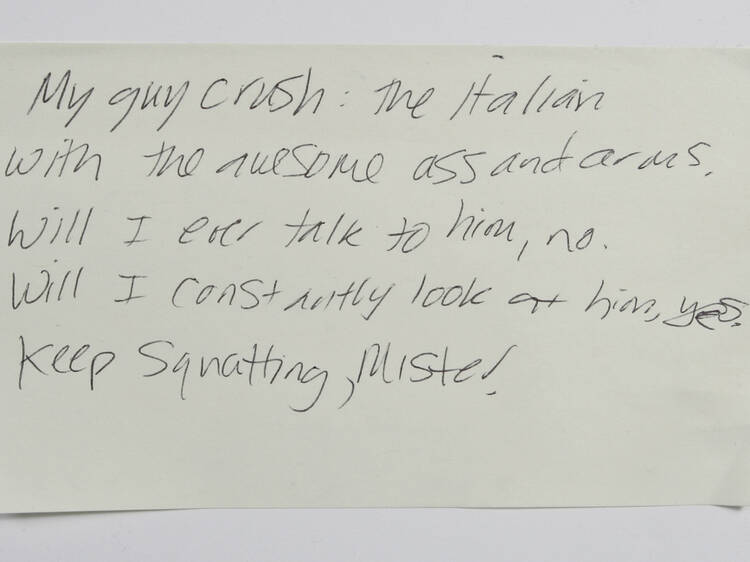 My guy crush: the Italian
with the awesome ass and arms.
Will I ever talk to him, no.
Will I constantly look at him, yes.
Keep Squatting, Mister!